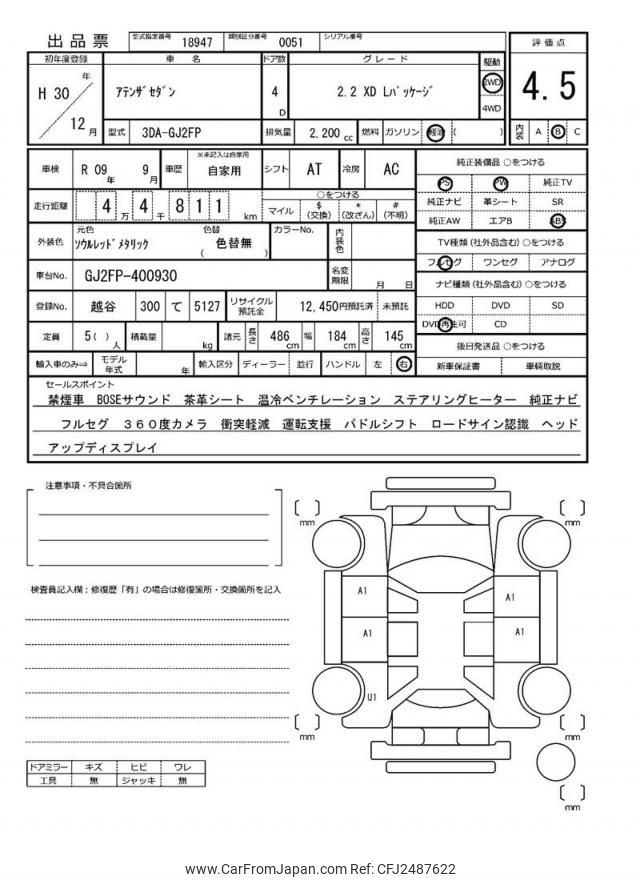 出品票 型式指定番号 18947 類別区分番号 0051 シリアル番号
初年度登録 車 名 ドア数 グレード 駆動 評価点
H 30 年 12 月 ｱﾃﾝｻﾞｾﾀﾞﾝ 4 D 2.2 XD Lﾊﾟｯｹｰｼﾞ 2WD 4WD 4.5
型式 3DA-GJ2FP 排気量 2,200 cc 燃料 ガソリン 軽油 ( ) 内装 A B C
車検 R 09 年 9 月 車歴 ※未記入は自家用 自家用 シフト AT 冷房 AC
走行距離 4 万 4 千 8 1 1 km ○をつける マイル $ (交換) * (改ざん) # (不明)
外装色 元色 ｿｳﾙﾚｯﾄﾞﾒﾀﾘｯｸ 色替 ( 色替無 ) カラーNo. 内装色
車台No. GJ2FP-400930 名変期限 月 日
登録No. 越谷 300 て 5127 リサイクル預託金 12,450円預託済 未預託
定員 5( ) 人 積載量 kg 諸元 長さ 486 cm 幅 184 cm 高さ 145 cm
輸入車のみ⇒ モデル年式 年 輸入区分 ディーラー 並行 ハンドル 左 右
純正装備品 ○をつける
PS PW 純正TV
純正ナビ 革シート SR
純正AW エアB ABS
TV種類 (社外品含む) ○をつける
フルセグ ワンセグ アナログ
ナビ種類 (社外品含む) ○をつける
HDD DVD SD
DVD再生可 CD
後日発送品 ○をつける
新車保証書 車輌取説
セールスポイント
禁煙車 BOSEサウンド 茶革シート 温冷ベンチレーション ステアリングヒーター 純正ナビ
フルセグ ３６０度カメラ 衝突軽減 運転支援 パドルシフト ロードサイン認識 ヘッド
アップディスプレイ
注意事項・不具合箇所
検査員記入欄：修復歴「有」の場合は修復箇所・交換箇所を記入
ドアミラー キズ ヒビ ワレ
工具 無 ジャッキ 無
mm mm
A1 A1
A1 A1
U1
mm mm
mm
www.CarFromJapan.com Ref: CFJ2487622